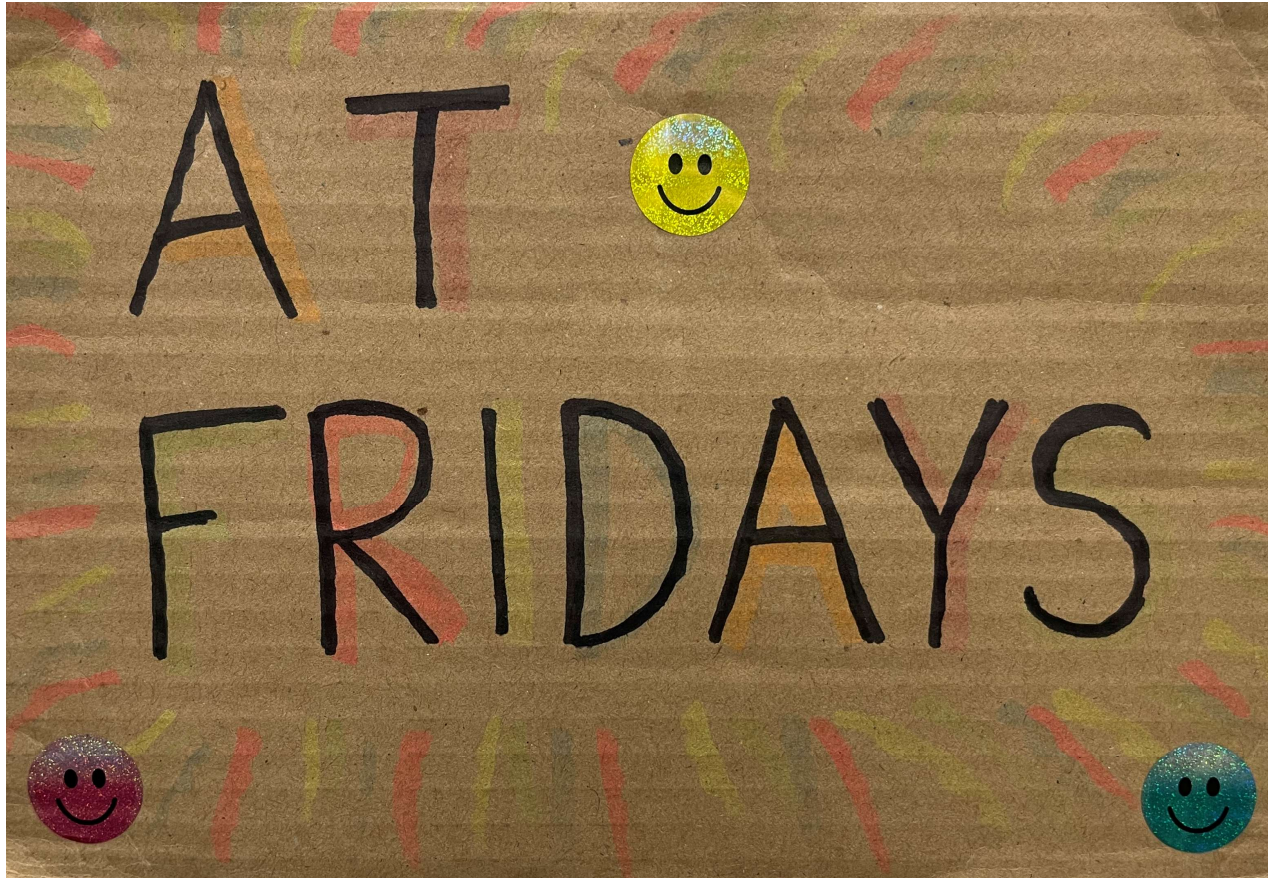 AT
FRIDAYS